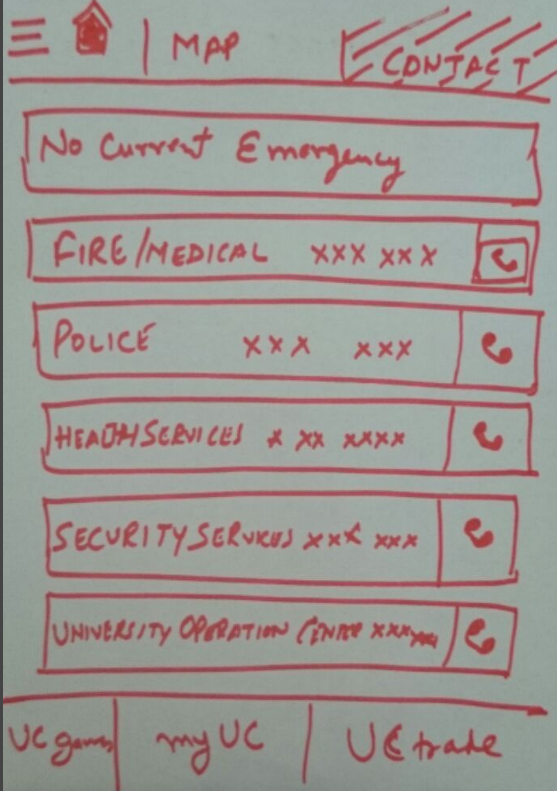 MAP
CONTACT
No Current Emergency
FIRE/MEDICAL xxx xxx
POLICE xxx xxx
HEALTH SERVICES x xx xxxx
SECURITY SERVICES xxx xxx
UNIVERSITY OPERATION CENTER xxxxxx
UC games
my UC
UC trade